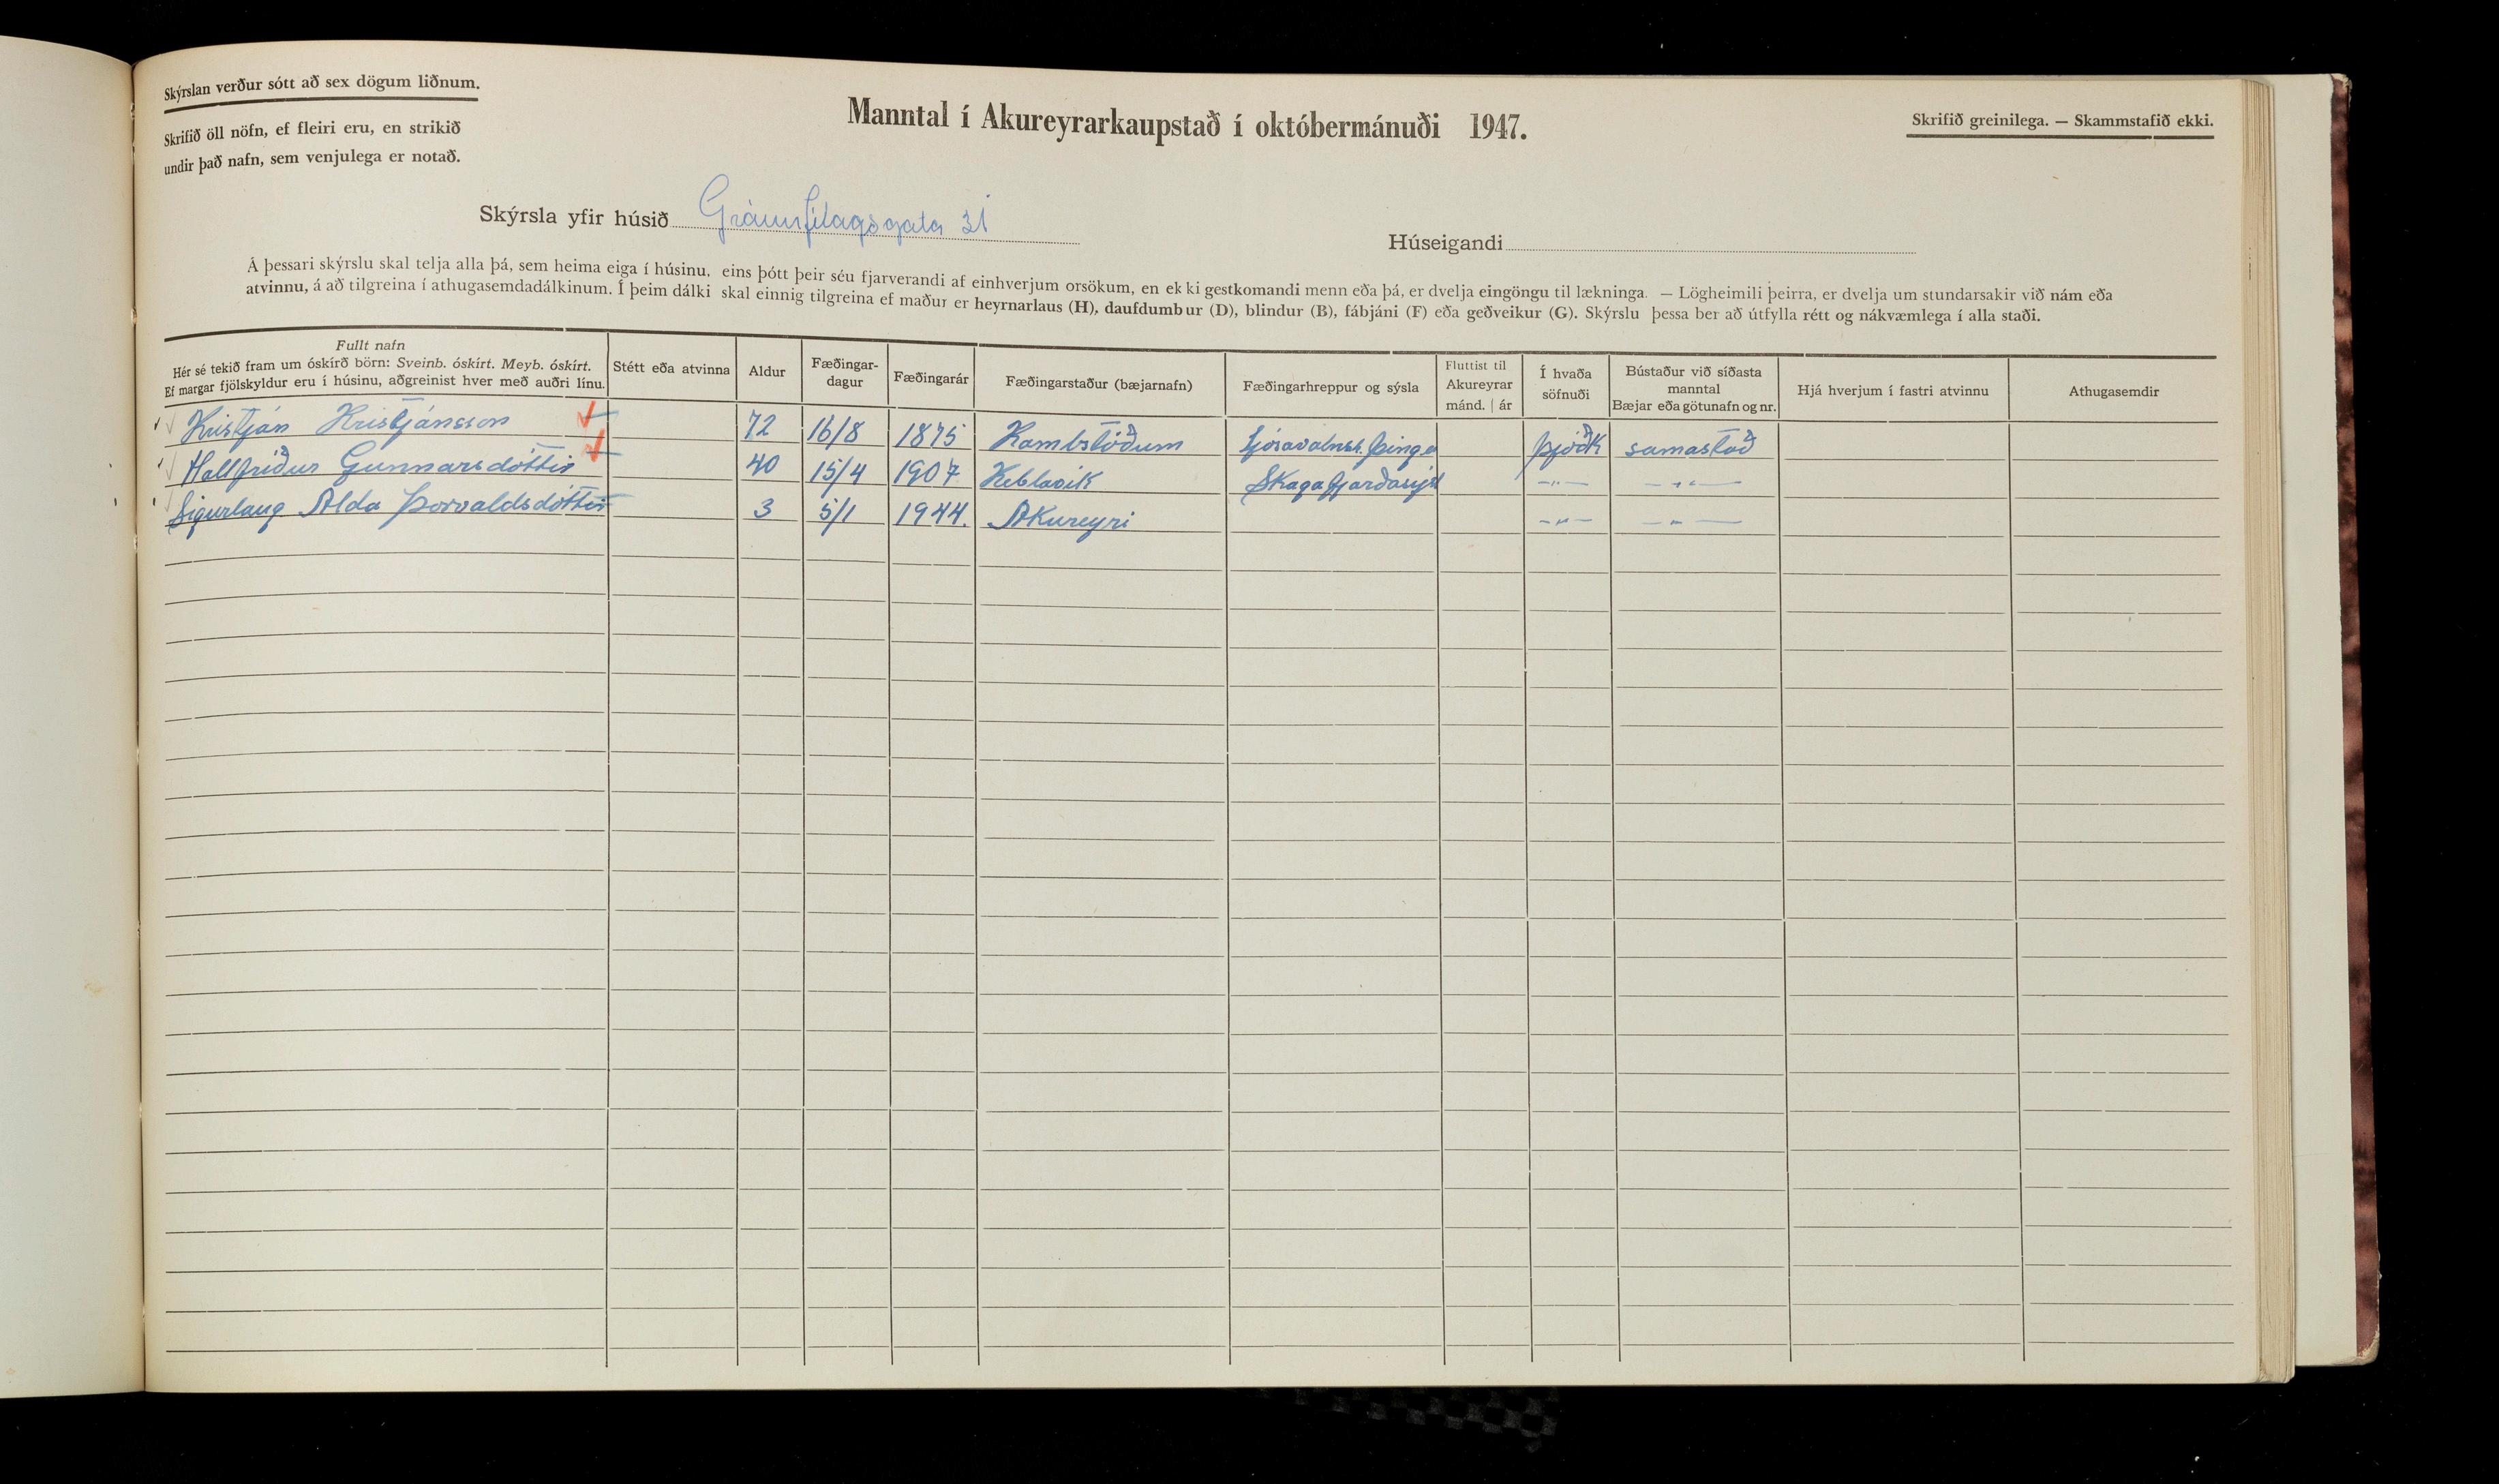 Skýrslan verður sótt að sex dögum liðnum.
Skrifið öll nöfn, ef fleiri eru, en strikið
undir það nafn, sem venjulega er notað.
Manntal í Akureyrarkaupstað í októbermánuði 1947.
Skrifið greinilega. — Skammstafið ekki.
Skýrsla yfir húsið Gránufélagsgata 31
Húseigandi
Á þessari skýrslu skal telja alla þá, sem heima eiga í húsinu, eins þótt þeir séu fjarverandi af einhverjum orsökum, en ekki gestkomandi menn eða þá, er dvelja eingöngu til lækninga. — Lögheimili þeirra, er dvelja um stundarsakir við nám eða
atvinnu, á að tilgreina í athugasemdadálkinum. Í þeim dálki skal einnig tilgreina ef maður er heyrnarlaus (H), daufdumbur (D), blindur (B), fábjáni (F) eða geðveikur (G). Skýrslu þessa ber að útfylla rétt og nákvæmlega í alla staði.
Fullt nafn
Hér sé tekið fram um óskírð börn: Sveinb. óskírt. Meyb. óskírt.
Ef margar fjölskyldur eru í húsinu, aðgreinist hver með auðri línu.
Stétt eða atvinna
Aldur
Fæðingar-
dagur
Fæðingarár
Fæðingarstaður (bæjarnafn)
Fæðingarhreppur og sýsla
Fluttist til
Akureyrar
mánd. | ár
Í hvaða
söfnuði
Bústaður við síðasta
manntal
Bæjar eða götunafn og nr.
Hjá hverjum í fastri atvinnu
Athugasemdir
Kristján Kristjánsson 72 16/8 1875 Kambstöðum Ljósavatnshr. Þing. Þjóðk samastað
Hallfríður Gunnarsdóttir 40 15/4 1907 Keblavík Skagafjarðarsýsl —"— —"—
Sigurlaug Alda Þorvaldsdóttir 3 5/1 1944. Akureyri —"— —"—